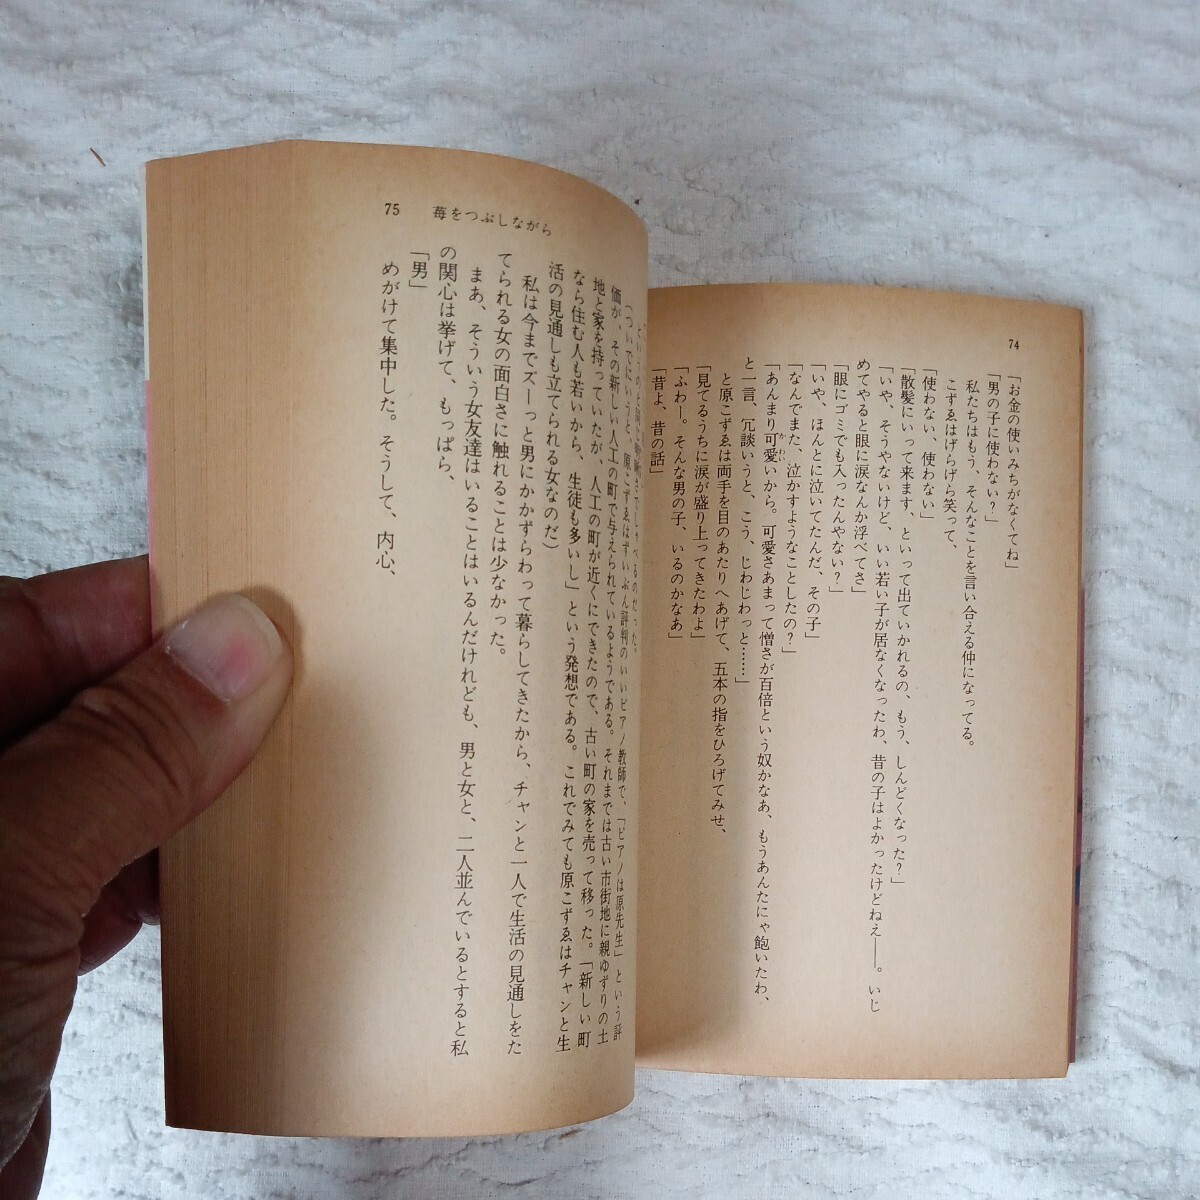 74
「お金の使いみちがなくてね」
「男の子に使わない？」
私たちはもう、そんなことを言い合える仲になってる。
こずゑはげらげら笑って、
「使わない、使わない」
「散髪にいって来ます、といって出ていかれるの、もう、しんどくなった？」
「いや、そうやないけど、いい若い子が居なくなったわ、昔の子はよかったけどねえ――。いじ
めてやると眼に涙なんか浮べてさ」
「眼にゴミでも入ったんやない？」
「いや、ほんとに泣いてたんだ、その子」
「なんでまた、泣かすようなことしたの？」
「あんまり可愛いから。可愛さあまって憎さが百倍という奴かなあ、もうあんたにゃ飽いたわ、
かわい
と一言、冗談いうと、こう、じわじわっと……」
と原こずゑは両手を目のあたりへあげて、五本の指をひろげてみせ、
「見てるうちに涙が盛り上ってきたわよ」
「ふわー。そんな男の子、いるのかなあ」
「昔よ、昔の話」
75 苺をつぶしながら
しゃべるのだった。
（ついでにいうと、原こずゑはずいぶん評判のいいピアノ教師で、「ピアノは原先生」という評
価が、その新しい人工の町で与えられているようである。それまでは古い市街地に親ゆずりの土
地と家を持っていたが、人工の町が近くにできたので、古い町の家を売って移った。「新しい町
なら住む人も若いから、生徒も多いし」という発想である。これでみても原こずゑはチャンと生
活の見通しも立てられる女なのだ）
私は今までズーっと男にかかずらわって暮らしてきたから、チャンと一人で生活の見通しをた
てられる女の面白さに触れることは少なかった。
まあ、そういう女友達はいることはいるんだけれども、男と女と、二人並んでいるとすると私
の関心は挙げて、もっぱら、
「男」
めがけて集中した。そうして、内心、